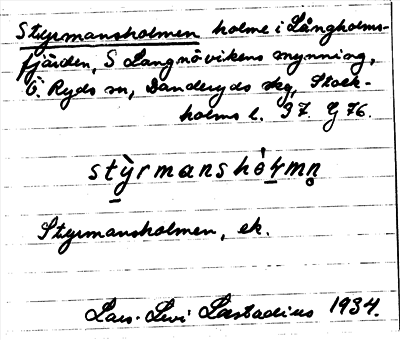 Styrmansholmen holme i Långholms-
fjärden, S Langnövikens mynning,
Ö. Ryds sn, Danderyds skg, Stock-
holms l. 97. Y 76.
stỳrmanshòɽmn̥
Styrmansholmen, ek.
Lars-Levi Læstadius 1934.